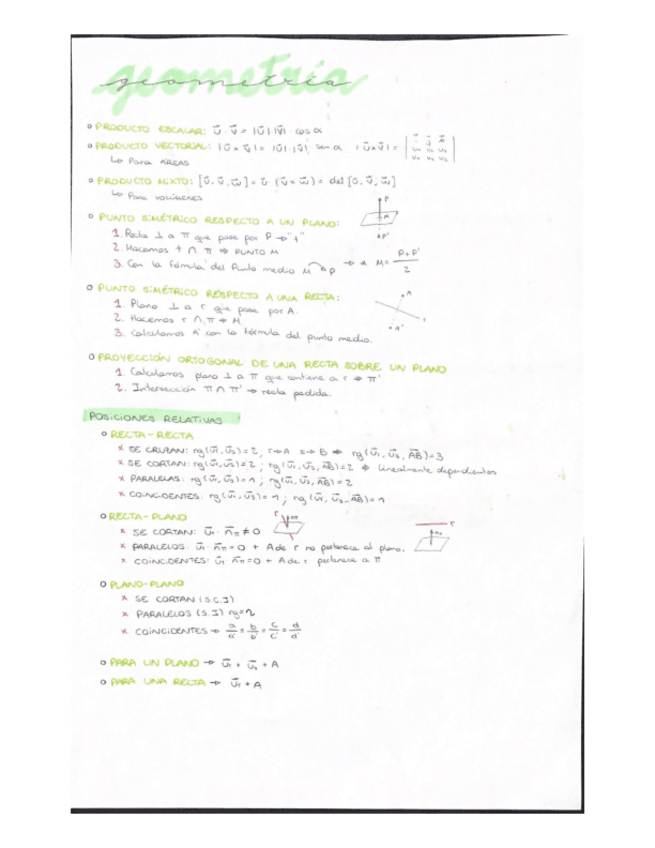 geometría
o PRODUCTO ESCALAR: ū · v̄ = |ū|·|v̄| cos α
o PRODUCTO VECTORIAL: |ū × v̄| = |ū|·|v̄| sen α |ū×v̄| =
↳ Para ÁREAS
o PRODUCTO MIXTO: [ū, v̄, w̄] = ū · (v̄ × w̄) = det [ū, v̄, w̄]
↳ Para VOLÚMENES
o PUNTO SIMÉTRICO RESPECTO A UN PLANO:
1. Recta ⊥ a π que pase por P → "t"
2. Hacemos t ∩ π ⇒ PUNTO M
3. Con la fórmula del Punto medio M P → M = P+P' / 2
P
M
P'
o PUNTO SIMÉTRICO RESPECTO A UNA RECTA:
1. Plano ⊥ a r que pase por A.
2. Hacemos r ∩ π → M
3. Calculamos A' con la fórmula del punto medio.
A
r
A'
o PROYECCIÓN ORTOGONAL DE UNA RECTA SOBRE UN PLANO
1. Calculamos plano ⊥ a π que contiene a r ⇒ π'
2. Intersección π ∩ π' → recta pedida.
POSICIONES RELATIVAS
o RECTA-RECTA
x SE CRUZAN: rg(ūr, ūs)=2; r→A s→B ⇒ rg(ūr, ūs, AB)=3
x SE CORTAN: rg(ūr, ūs)=2; rg(ūr, ūs, AB)=2 ⇒ linealmente dependientes
x PARALELAS: rg(ūr, ūs)=1; rg(ūr, ūs, AB)=2
x COINCIDENTES: rg(ūr, ūs)=1; rg(ūr, ūs, AB)=1
o RECTA-PLANO
x SE CORTAN: ūr · n̄π ≠ 0
x PARALELOS: ūr · n̄π = 0 + A de r no pertenece al plano.
x COINCIDENTES: ūr · n̄π = 0 + A de r pertenece a π
r
o PLANO-PLANO
x SE CORTAN (S.C.I)
x PARALELOS (S.I) rg=2
x COINCIDENTES → a/a' = b/b' = c/c' = d/d'
o PARA UN PLANO → ūr + ūs + A
o PARA UNA RECTA → ūr + A